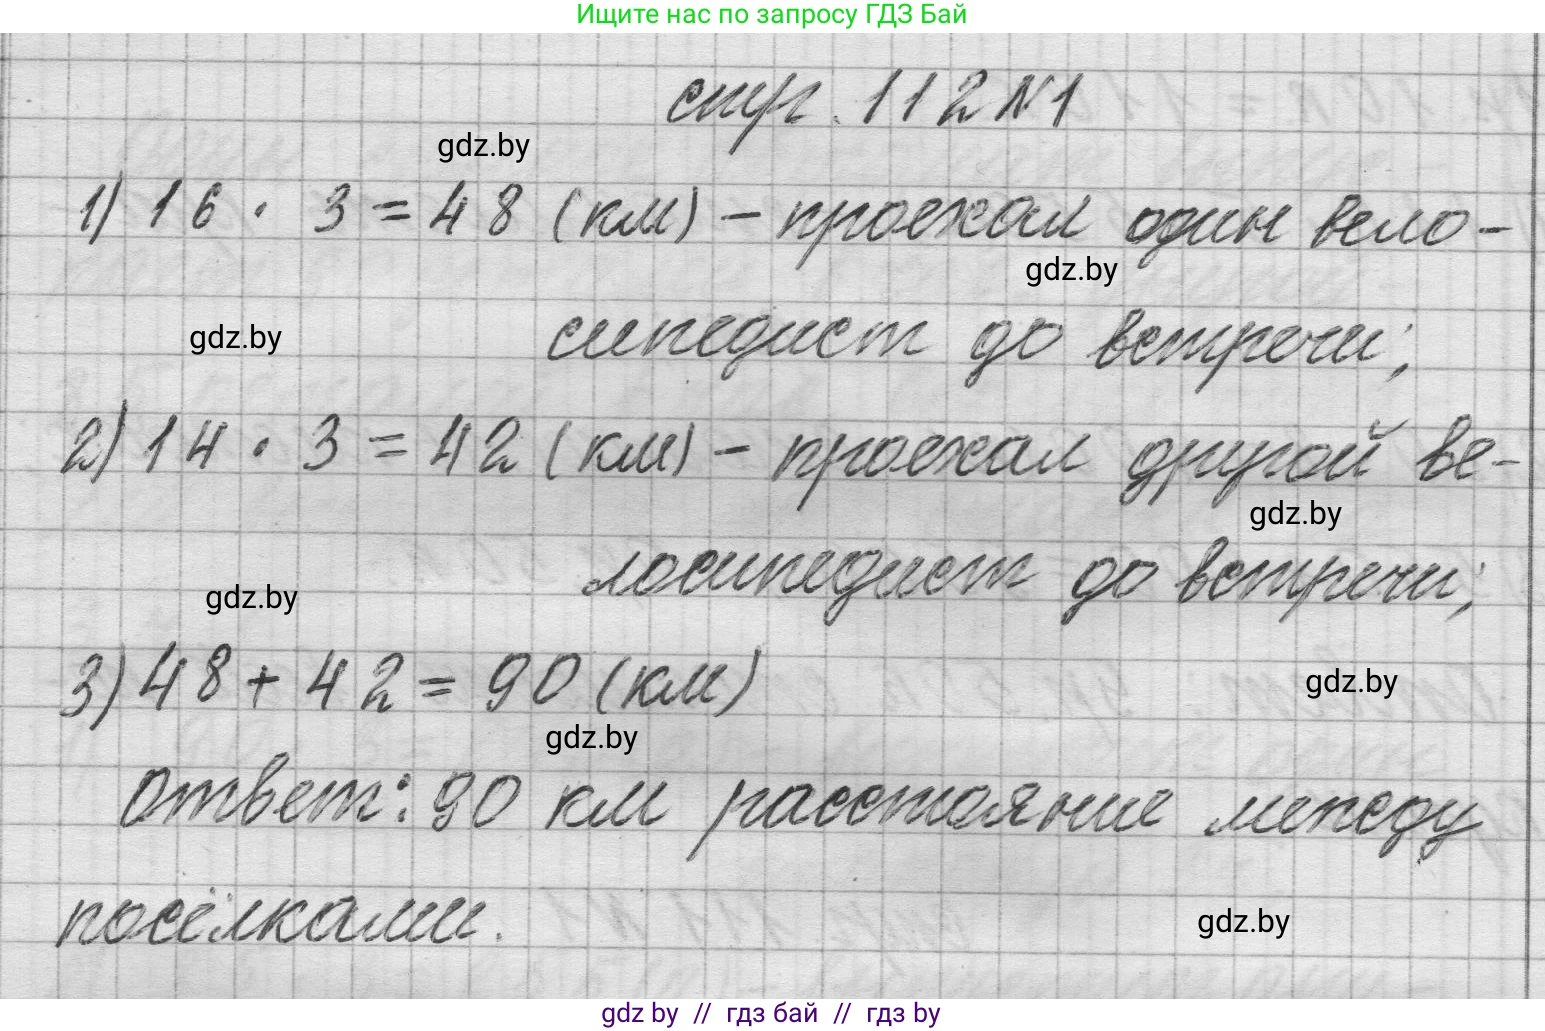 Ищите нас по запросу ГДЗ Бай
стр. 112 №1
gdz.by
1) 16 · 3 = 48 (км) – проехал один вело-
gdz.by
gdz.by
сипедист до встречи;
2) 14 · 3 = 42 (км) – проехал другой ве-
gdz.by
лосипедист до встречи;
gdz.by
3) 48 + 42 = 90 (км)
gdz.by
gdz.by
Ответ: 90 км расстояние между
посёлками.
gdz.by
gdz by // гдз бай // гдз by